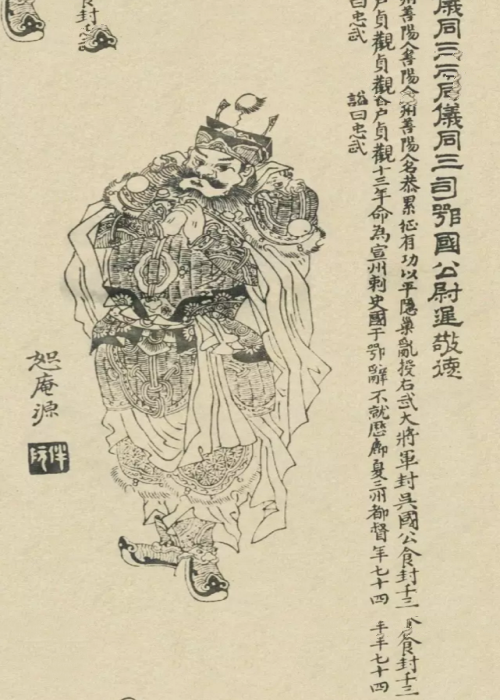 儀同三三司儀同三司鄂國公尉遲敬德
州善陽人善陽人州善陽人名恭累征有功以平隱巢亂授右武大將軍封吳國公食封千三 食封千三
戶貞觀貞觀戶貞觀十三年命為宣州刺史國于鄂辭不就歷鄜夏三州都督年七十四 年七十四
曰忠武 謚曰忠武
封
恕庵源
伴阮